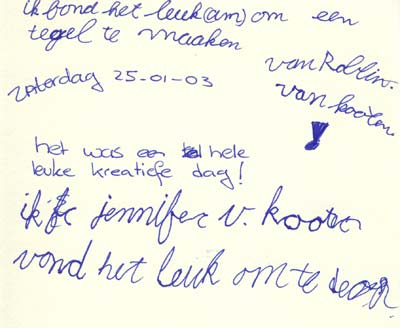 ik fond het leuk(am) om een
tegel te maaken
zaterdag 25-01-03
van Roblin.
van kooten.
het was een hele
leuke kreatiefe dag!
ik jennifer v. kooten
vond het leuk om te doen.